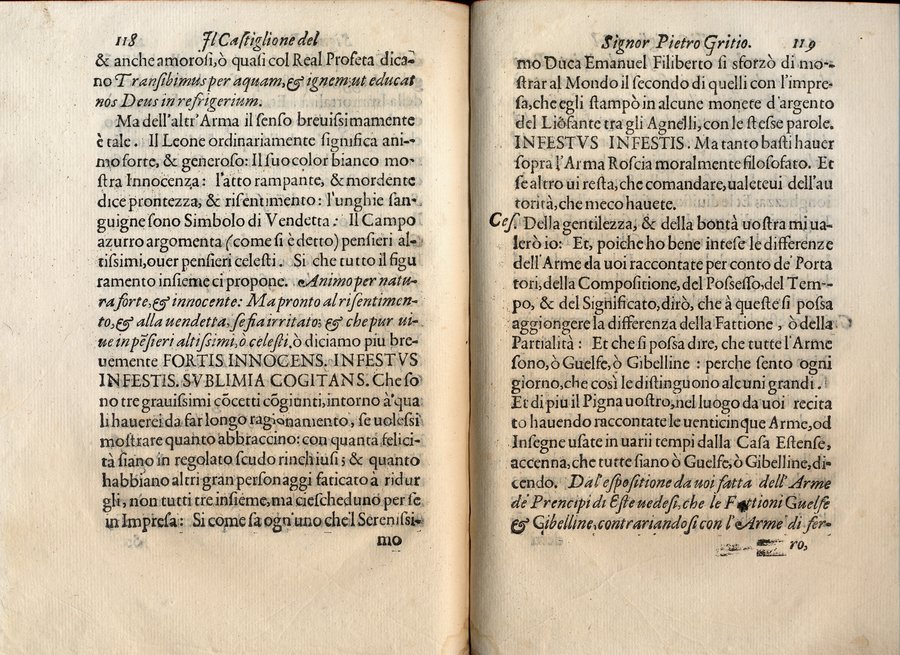 118 Il Castiglione del
& anche amorosi, ò quasi col Real Profeta dica-
no Transibimus per aquam, & ignem, ut educat
nos Deus in refrigerium.
Ma dell'altr'Arma il senso breuissimamente
è tale. Il Leone ordinariamente significa ani-
mo forte, & generoso: Il suo color bianco mo-
stra Innocenza: l'atto rampante, & mordente
dice prontezza, & risentimento: l'unghie san-
guigne sono Simbolo di Vendetta: Il Campo
azurro argomenta (come si è detto) pensieri al-
tissimi, ouer pensieri celesti. Si che tutto il figu
ramento insieme ci propone. Animo per natu-
ra forte, & innocente: Ma pronto al risentimen-
to, & alla uendetta, se fia irritato; & che pur ui-
ue in pẽsieri altissimi, ò celesti, ò diciamo piu bre-
uemente FORTIS INNOCENS. INFESTVS
INFESTIS. SVBLIMIA COGITANS. Che so
no tre grauissimi cõcetti cõgiunti, intorno à' qua
li hauerei da far longo ragionamento, se uolessi
mostrare quanto abbraccino: con quanta felici-
tà siano in regolato scudo rinchiusi; & quanto
habbiano altri gran personaggi faticato à ridur
gli, non tutti tre insieme, ma ciescheduno per se
in Impresa: Si come sa ogn'uno che'l Serenissi-
mo
Signor Pietro Gritio. 119
mo Duca Emanuel Filiberto si sforzò di mo-
strar al Mondo il secondo di quelli con l'impre-
sa, che egli stampò in alcune monete d'argento
del Liõfante tra gli Agnelli, con le stesse parole.
INFESTVS INFESTIS. Ma tanto basti hauer
sopra l'Arma Roscia moralmente filosofato. Et
se altro ui resta, che comandare, ualeteui dell'au
torità, che meco hauete.
Ces. Della gentilezza, & della bontà uostra mi ua-
lerò io: Et, poiche ho bene intese le differenze
dell'Arme da uoi raccontate per conto de' Porta
tori, della Compositione, del Possesso, del Tem-
po, & del Significato, dirò, che à queste si possa
aggiongere la differenza della Fattione, ò della
Partialità: Et che si possa dire, che tutte l'Arme
sono, ò Guelfe, ò Gibelline: perche sento ogni
giorno, che così le distinguono alcuni grandi.
Et di piu il Pigna uostro, nel luogo da uoi recita
to hauendo raccontate le uenticinque Arme, od
Insegne usate in uarii tempi dalla Casa Estense,
accenna, che tutte siano ò Guelfe, ò Gibelline, di-
cendo. Dal'espositione da uoi fatta dell'Arme
de' Prencipi di Este uedesi, che le Fattioni Guelfe
& Gibelline, contrariandosi con l'Arme di fer-
ro,